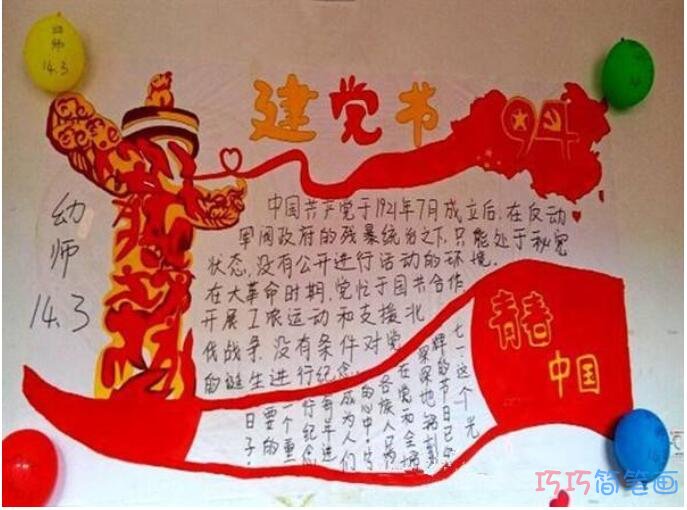 幼师
14.3
建党节
94
幼师
14.3
中国共产党于1921年7月成立后,在反动
军阀政府的残暴统治之下,只能处于秘密
状态,没有公开进行活动的环境.
在大革命时期,党忙于国共合作
开展工农运动和支援北
伐战争.没有条件对党
的诞生进行纪念.
青春
中国
七一,这个光
辉的节日已
深深地铭刻
在党和全
各族人民
的心中.
成为人们
每年进
行纪念
一个重
要的
日子.
巧巧简笔画